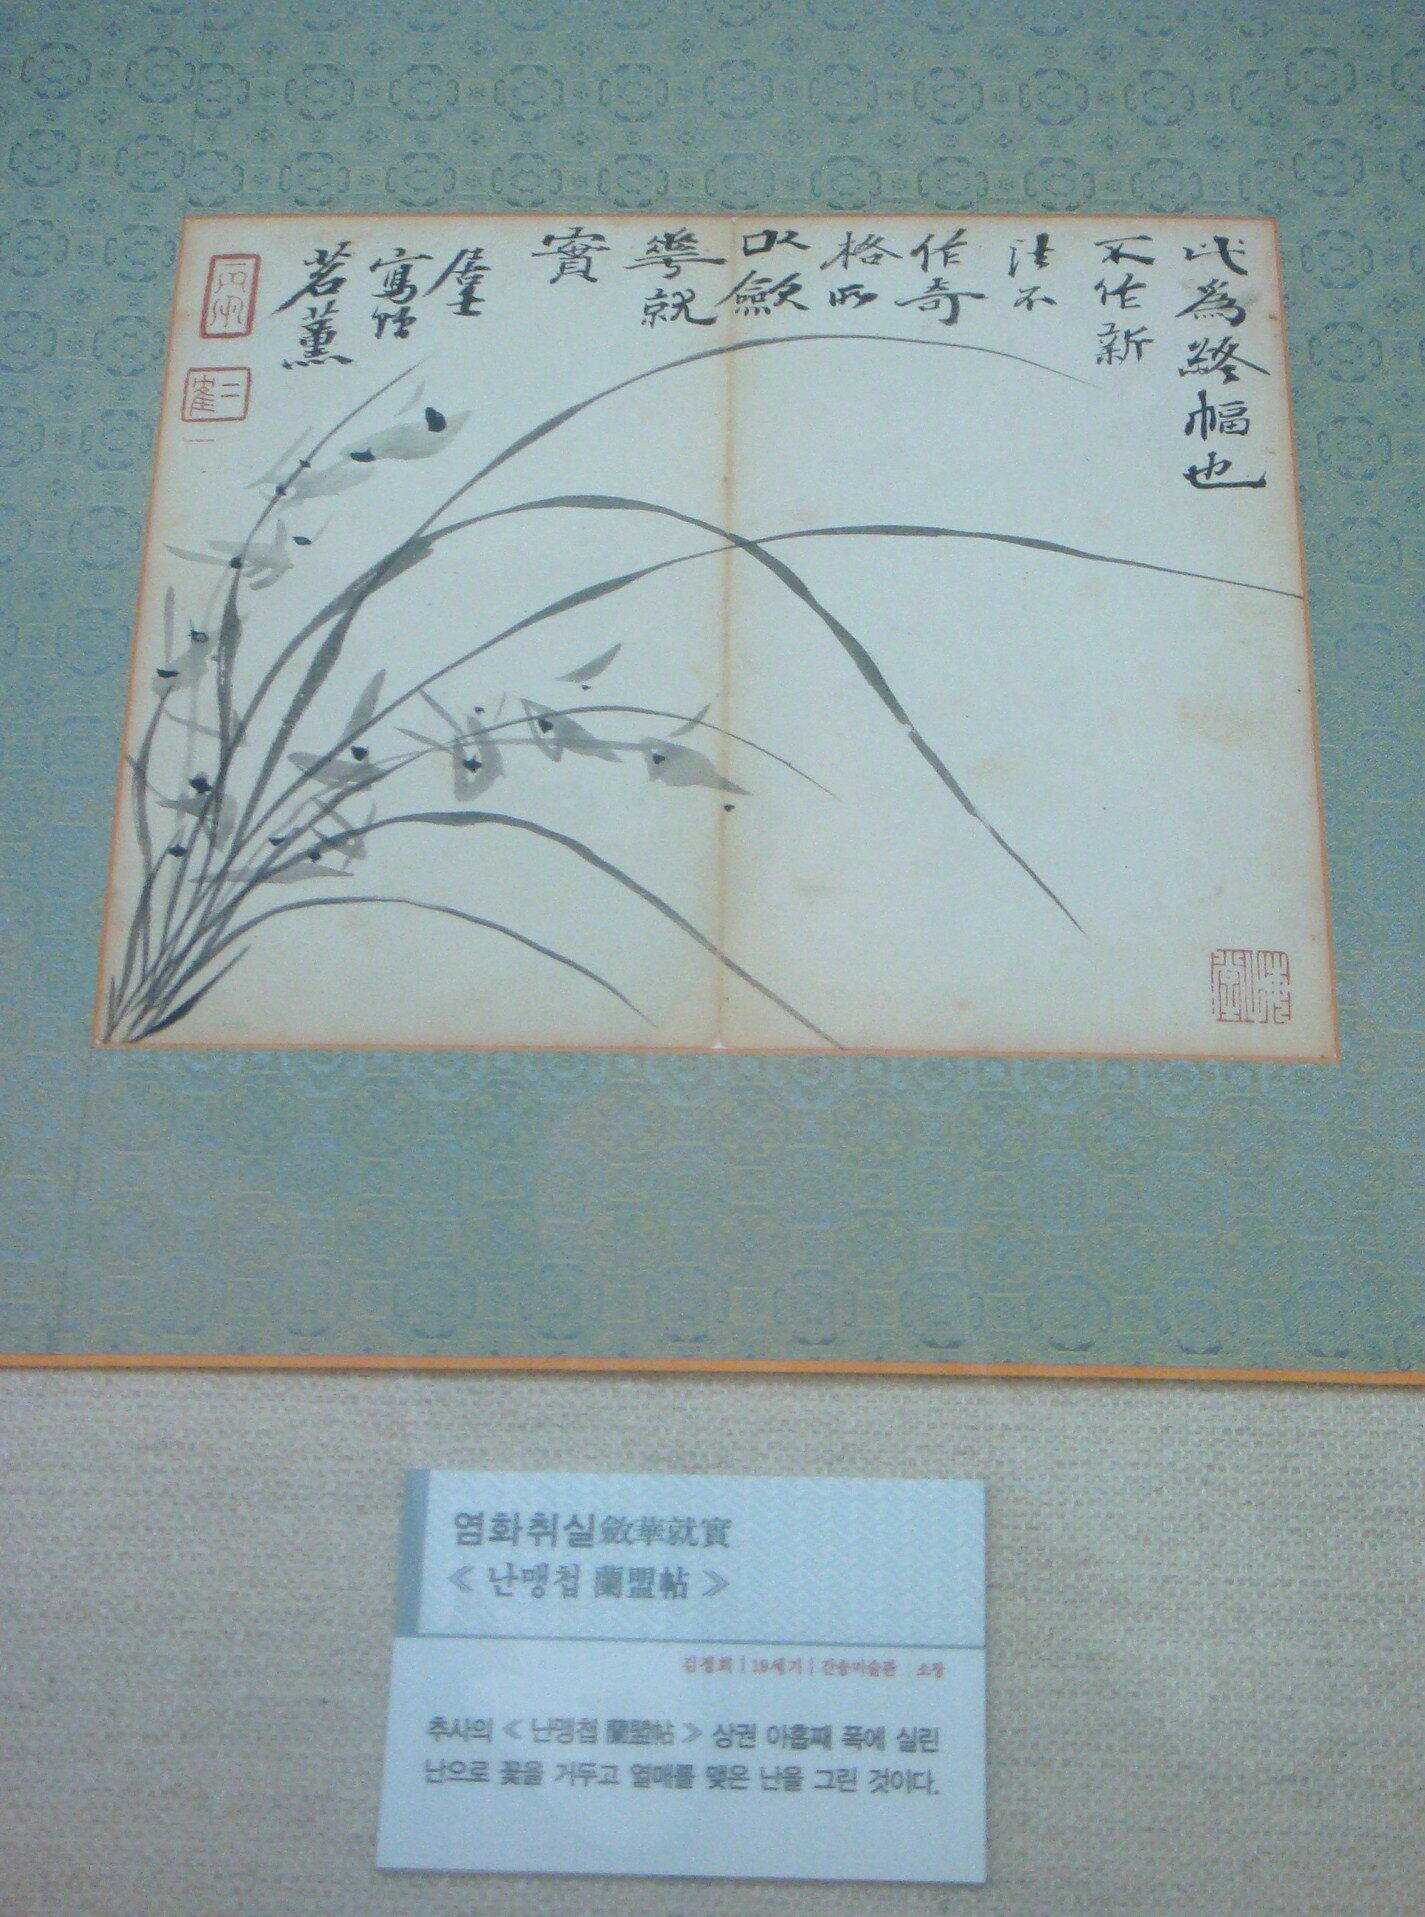 此爲終幅也
不作新
法不
作奇
格所
以斂
華就
實
居士
寫贈
茗薰
염화취실斂華就實
≪ 난맹첩 蘭盟帖 ≫
김정희 | 19세기 | 간송미술관 소장
추사의 ≪ 난맹첩 蘭盟帖 ≫ 상권 아홉째 폭에 실린
난으로 꽃을 거두고 열매를 맺은 난을 그린 것이다.